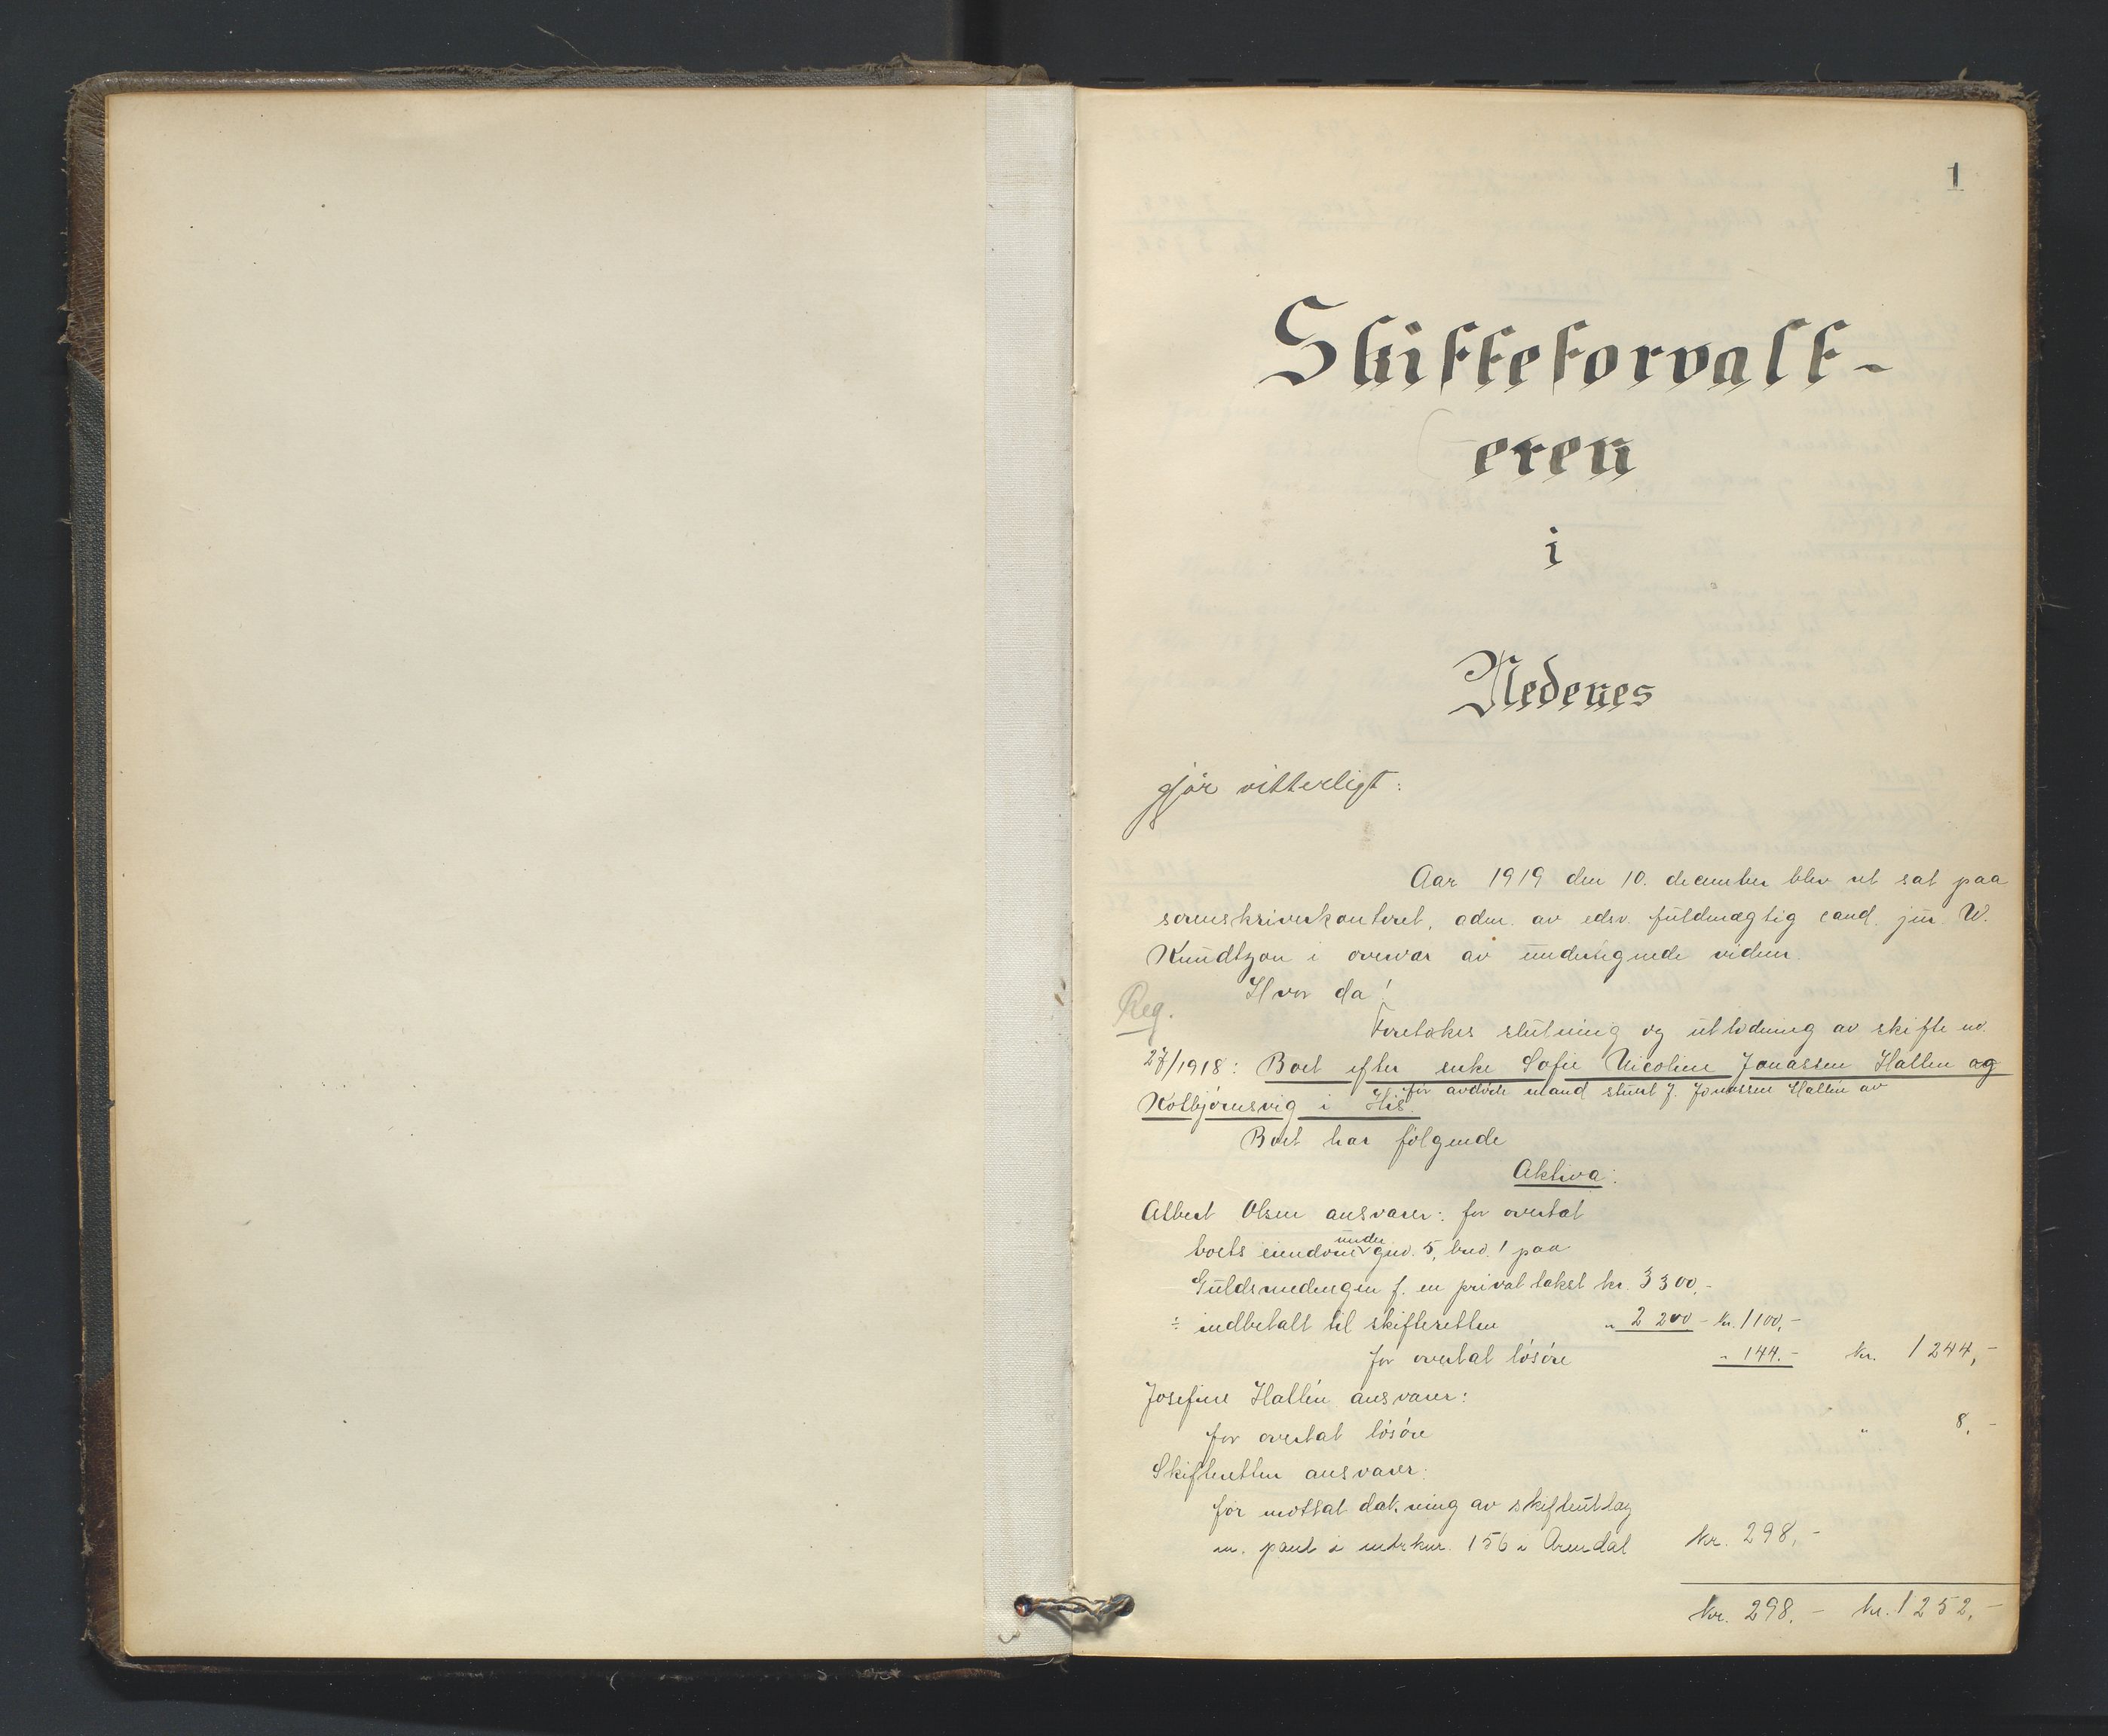 1
Skifteforvalt-
eren
i
Nedenes
gjør vitterligt:
Aar 1919 den 10. december blev ret sat paa
sorenskriverkontoret, adm. av edsv. fuldmægtig cand. jur. W.
Knudtzon i overvær av undertegnede vidner.
Hvor da!
Reg.
Foretokes slutning og utlodning av skifte nr.
27/1918: Boet efter enke Sofie Nicoline Jonassen Hallen og
før avdøde mand J. Jonassen Hallen av
Kolbjørnsvig i His.
Boet har følgende
Aktiva:
Albert Olsen ansvarer: for overtat
boets eiendom under gnr. 5, bnr. 1 paa
Guldsmedengen f. en privat takst kr. 3300,-
÷ indbetalt til skifteretten " 2 200 - kr. 1100,-
for overtat løsøre " 144.- kr. 1244,-
Josefine Hallen ansvarer:
for overtat løsøre " 8,-
Skifteretten ansvarer:
for mottat dækning av skifteutlæg
m. pant i mtrknr. 156 i Arendal kr. 298,-
kr. 298.- kr. 1252,-